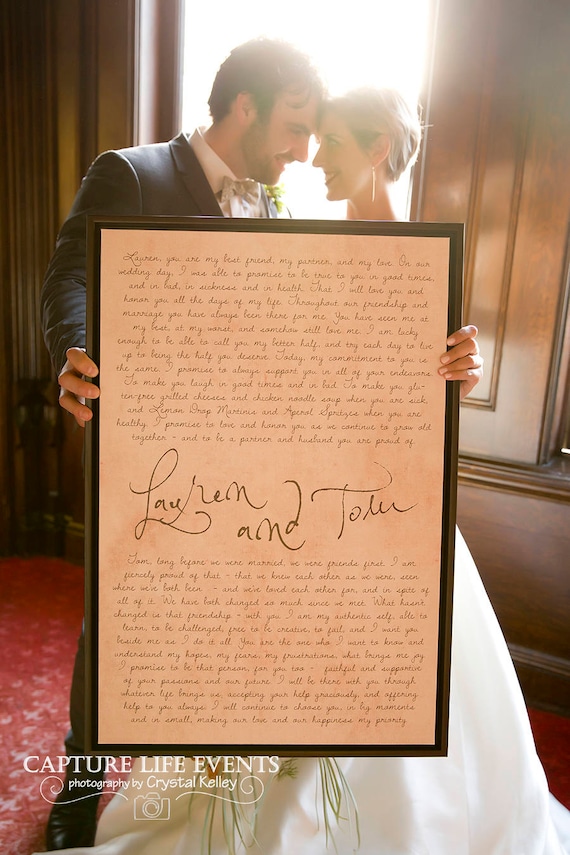 Lauren, you are my best friend, my partner, and my love. On our
wedding day, I was able to promise to be true to you in good times,
and in bad, in sickness and in health. That I will love you and
honor you all the days of my life. Throughout our friendship and
marriage you have always been there for me. You have seen me at
my best, at my worst, and somehow still love me. I am lucky
enough to be able to call you my better half, and try each day to live
up to being the half you deserve. Today, my commitment to you is
the same. I promise to always support you in all of your endeavors.
To make you laugh in good times and in bad. To make you glu-
ten-free grilled cheeses and chicken noodle soup when you are sick,
and Lemon Drop Martinis and Aperol Spritzes when you are
healthy. I promise to love and honor you, as we continue to grow old
together - and to be a partner and husband you are proud of.
Lauren
and Tom
Tom, long before we were married, we were friends first. I am
fiercely proud of that - that we knew each other as we were, seen
where we've both been - and we've loved each other for, and in spite of
all of it. We have both changed so much since we met. What hasn't
changed is that friendship - with you I am my authentic self, able to
learn, to be challenged, free to be creative, to fail, and I want you
beside me as I do it all. You are the one who I want to know and
understand my hopes, my fears, my frustrations, what brings me joy.
I promise to be that person, for you too - faithful and supportive
of your passions and our future. I will be there with you through
whatever life brings us, accepting your help graciously, and offering
help to you always. I will continue to choose you, in big moments
and in small, making our love and our happiness my priority.
CAPTURE LIFE EVENTS
photography by Crystal Kelley